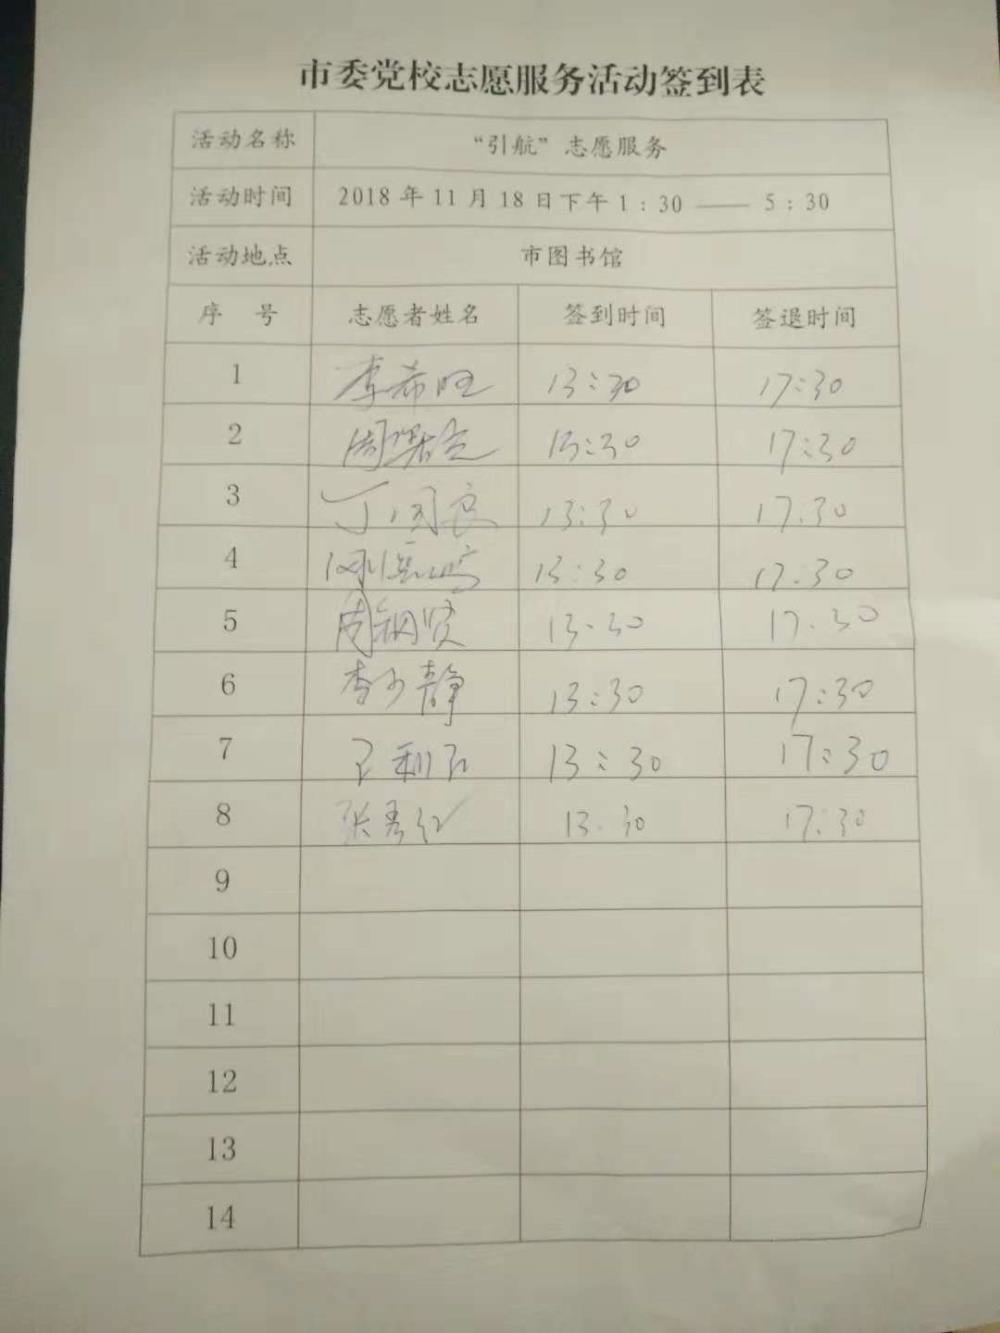 市委党校志愿服务活动签到表
活动名称 “引航”志愿服务
活动时间 2018年11月18日下午1:30——5:30
活动地点 市图书馆
序 号 志愿者姓名 签到时间 签退时间
1 李希旺 13:30 17:30
2 13:30 17:30
3 丁国良 13:30 17.30
4 13:30 17.30
5 13.30 17.30
6 李少静 13:30 17:30
7 13:30 17:30
8 张秀红 13.30 17:30
9
10
11
12
13
14